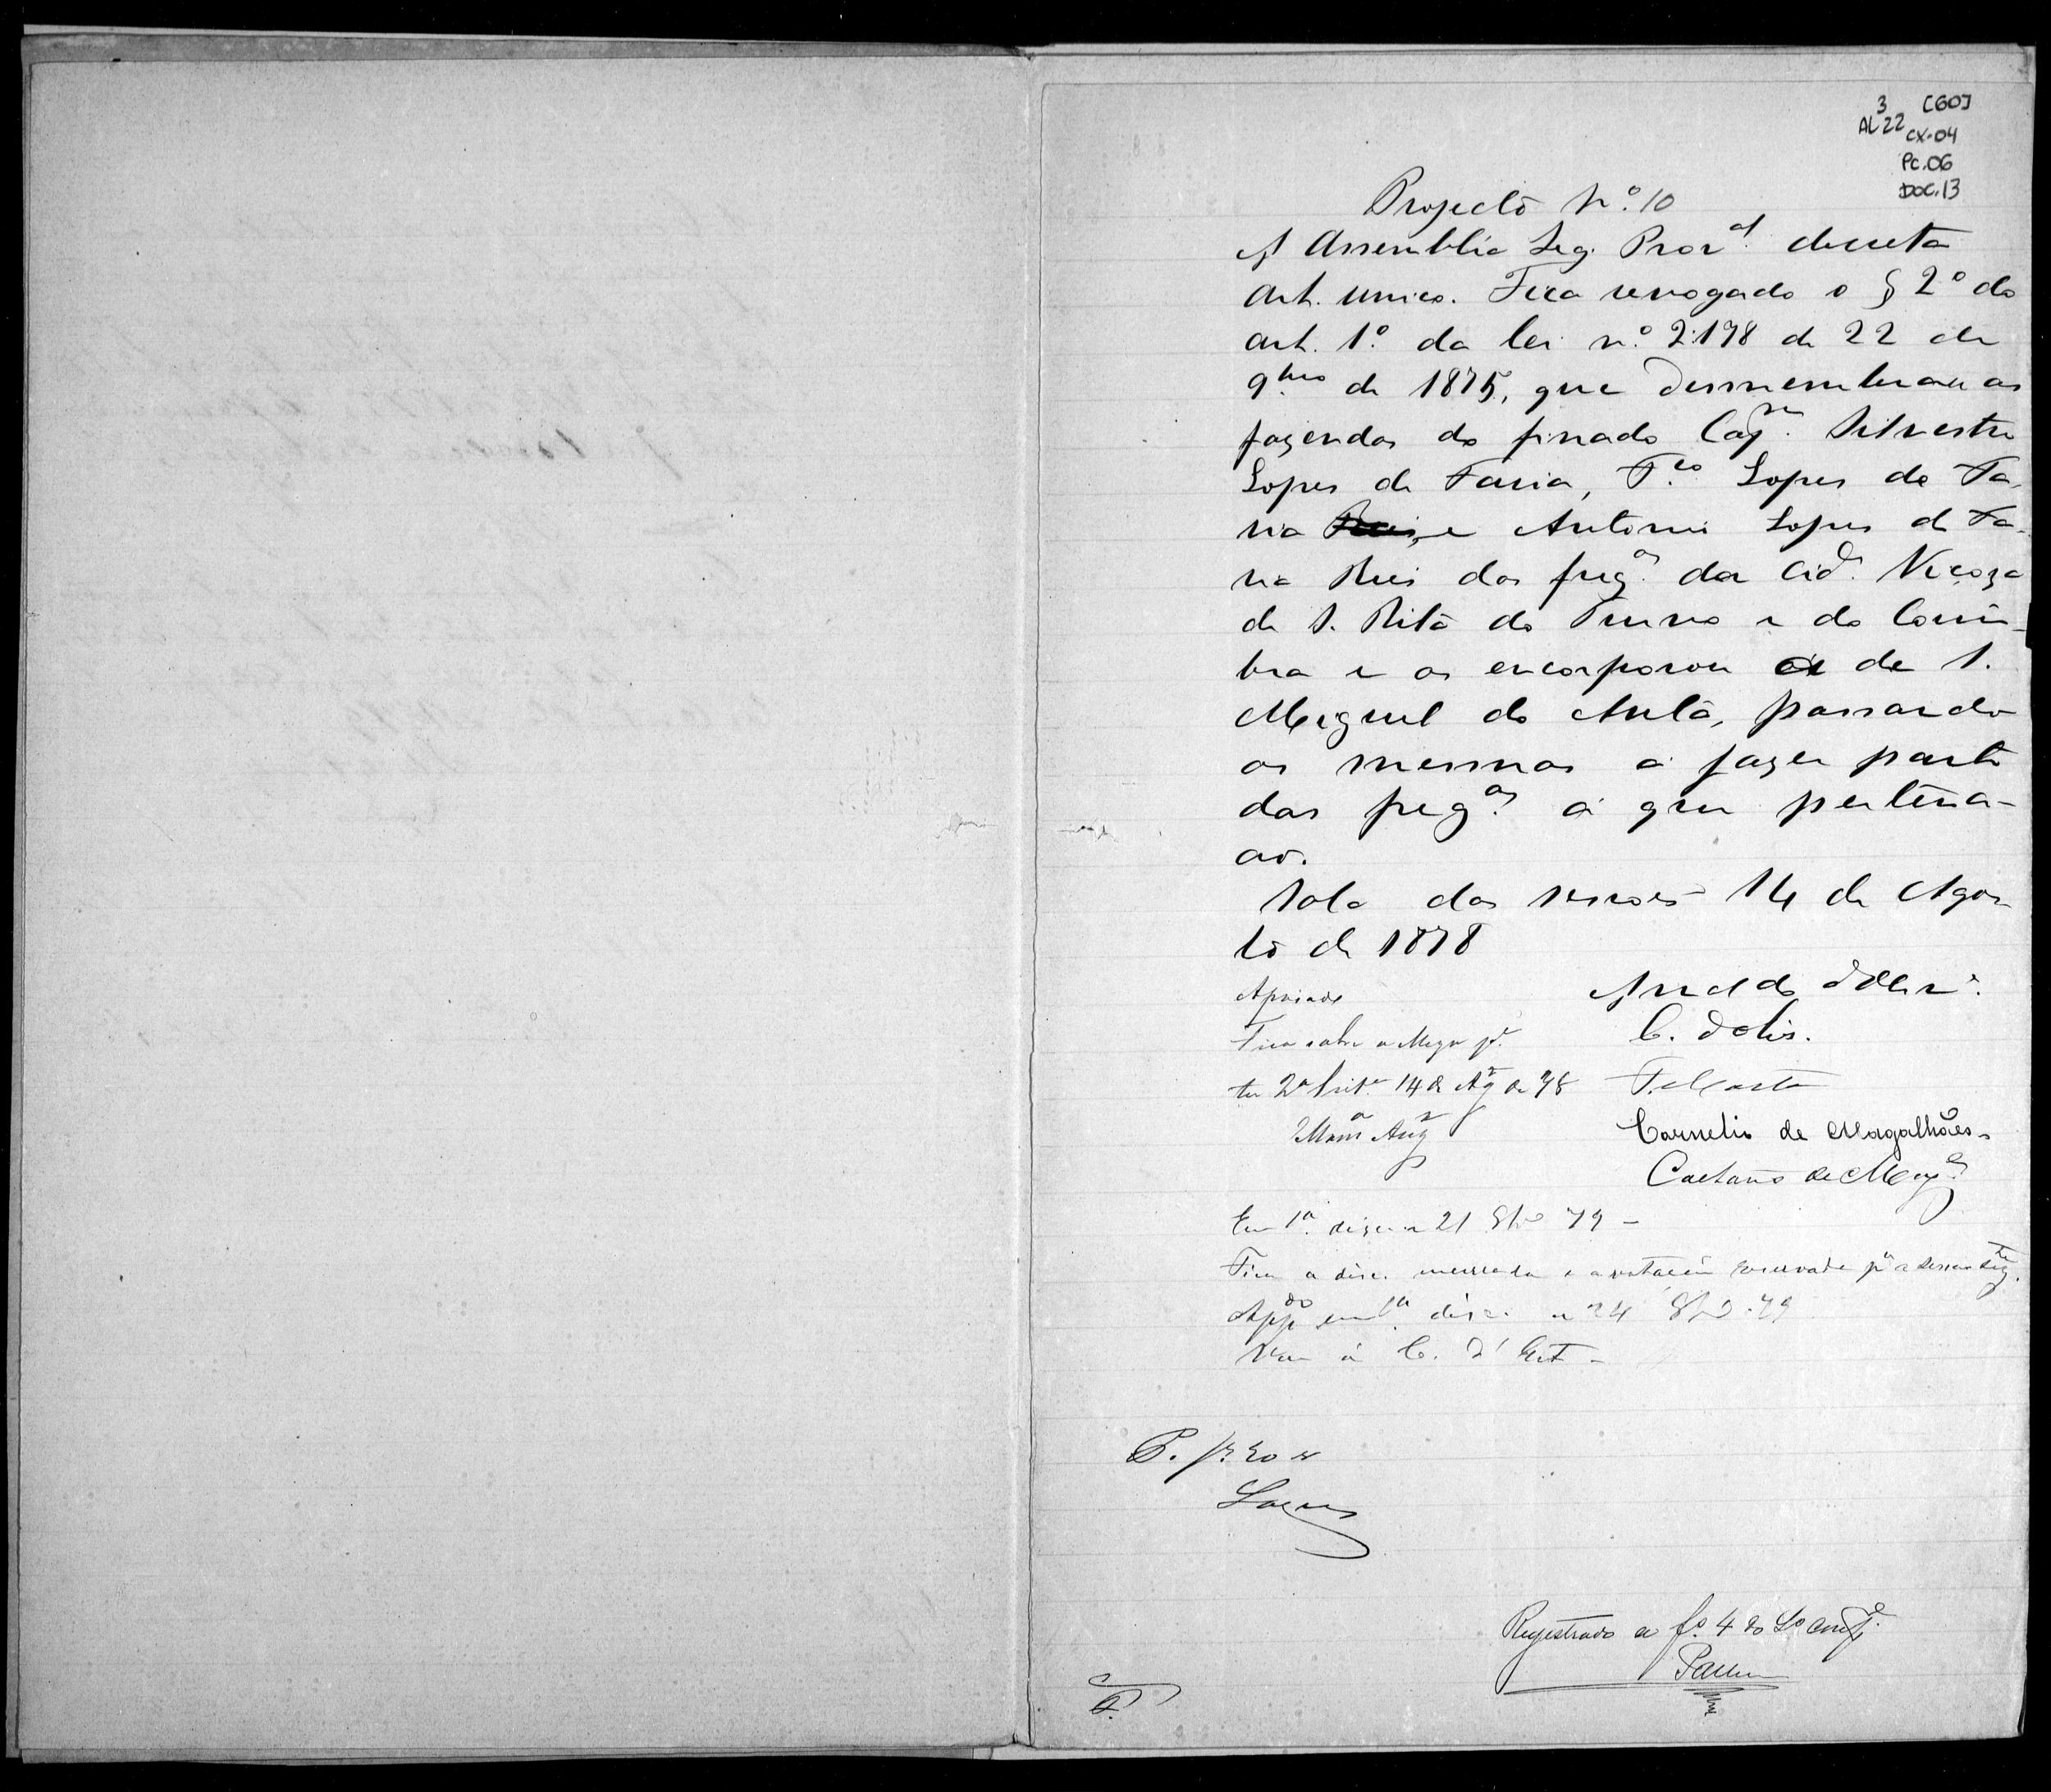 3 [60]
AL 22 CX-04
PC.06
DOC.13
Projecto N.º 10
A Assembléa Leg. Prov.al decreta
Art. unico. Fica revogado o § 2º do
art. 1º da lei n.º 2:198 de 22 de
9bro de 1875, que desmembrou as
fazendas do finado Cap.m Silvestre
Lopes de Faria, F.co Lopes de Fa-
ria e Antonio Lopes de Fa-
ria Reis das freg.as da Cid.e Viçoza
de S. Rita do Turvo e do Coim-
bra e as encorporou a de S.
Miguel do Anta, passando
as mesmas a fazer parte
das freg.as á que pertenci-
ão.
Sala das sessoes 14 de Agos
to de 1878
Apoiado
C. dotis.
Fica sobre a Meza p.a
ter 2.a leit.a 14 de Ag.o de 78
F. Costa
Cornelio de Magalhães
Caetano de Mag.es
Em 1.a disc. a 21 8bro 79 -
Fica a disc. encerrada e a votação reservada p.a a sessão seg.te
App.do em 1.a disc. a 24 8bro 79
Vae á C. d'Est -
Registrado a f.º 4 do L.º comp.e